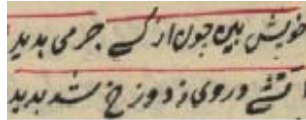 خویش بین چون از کسی جرمی بدید
آتشی در وی ز دوزخ شد پدید